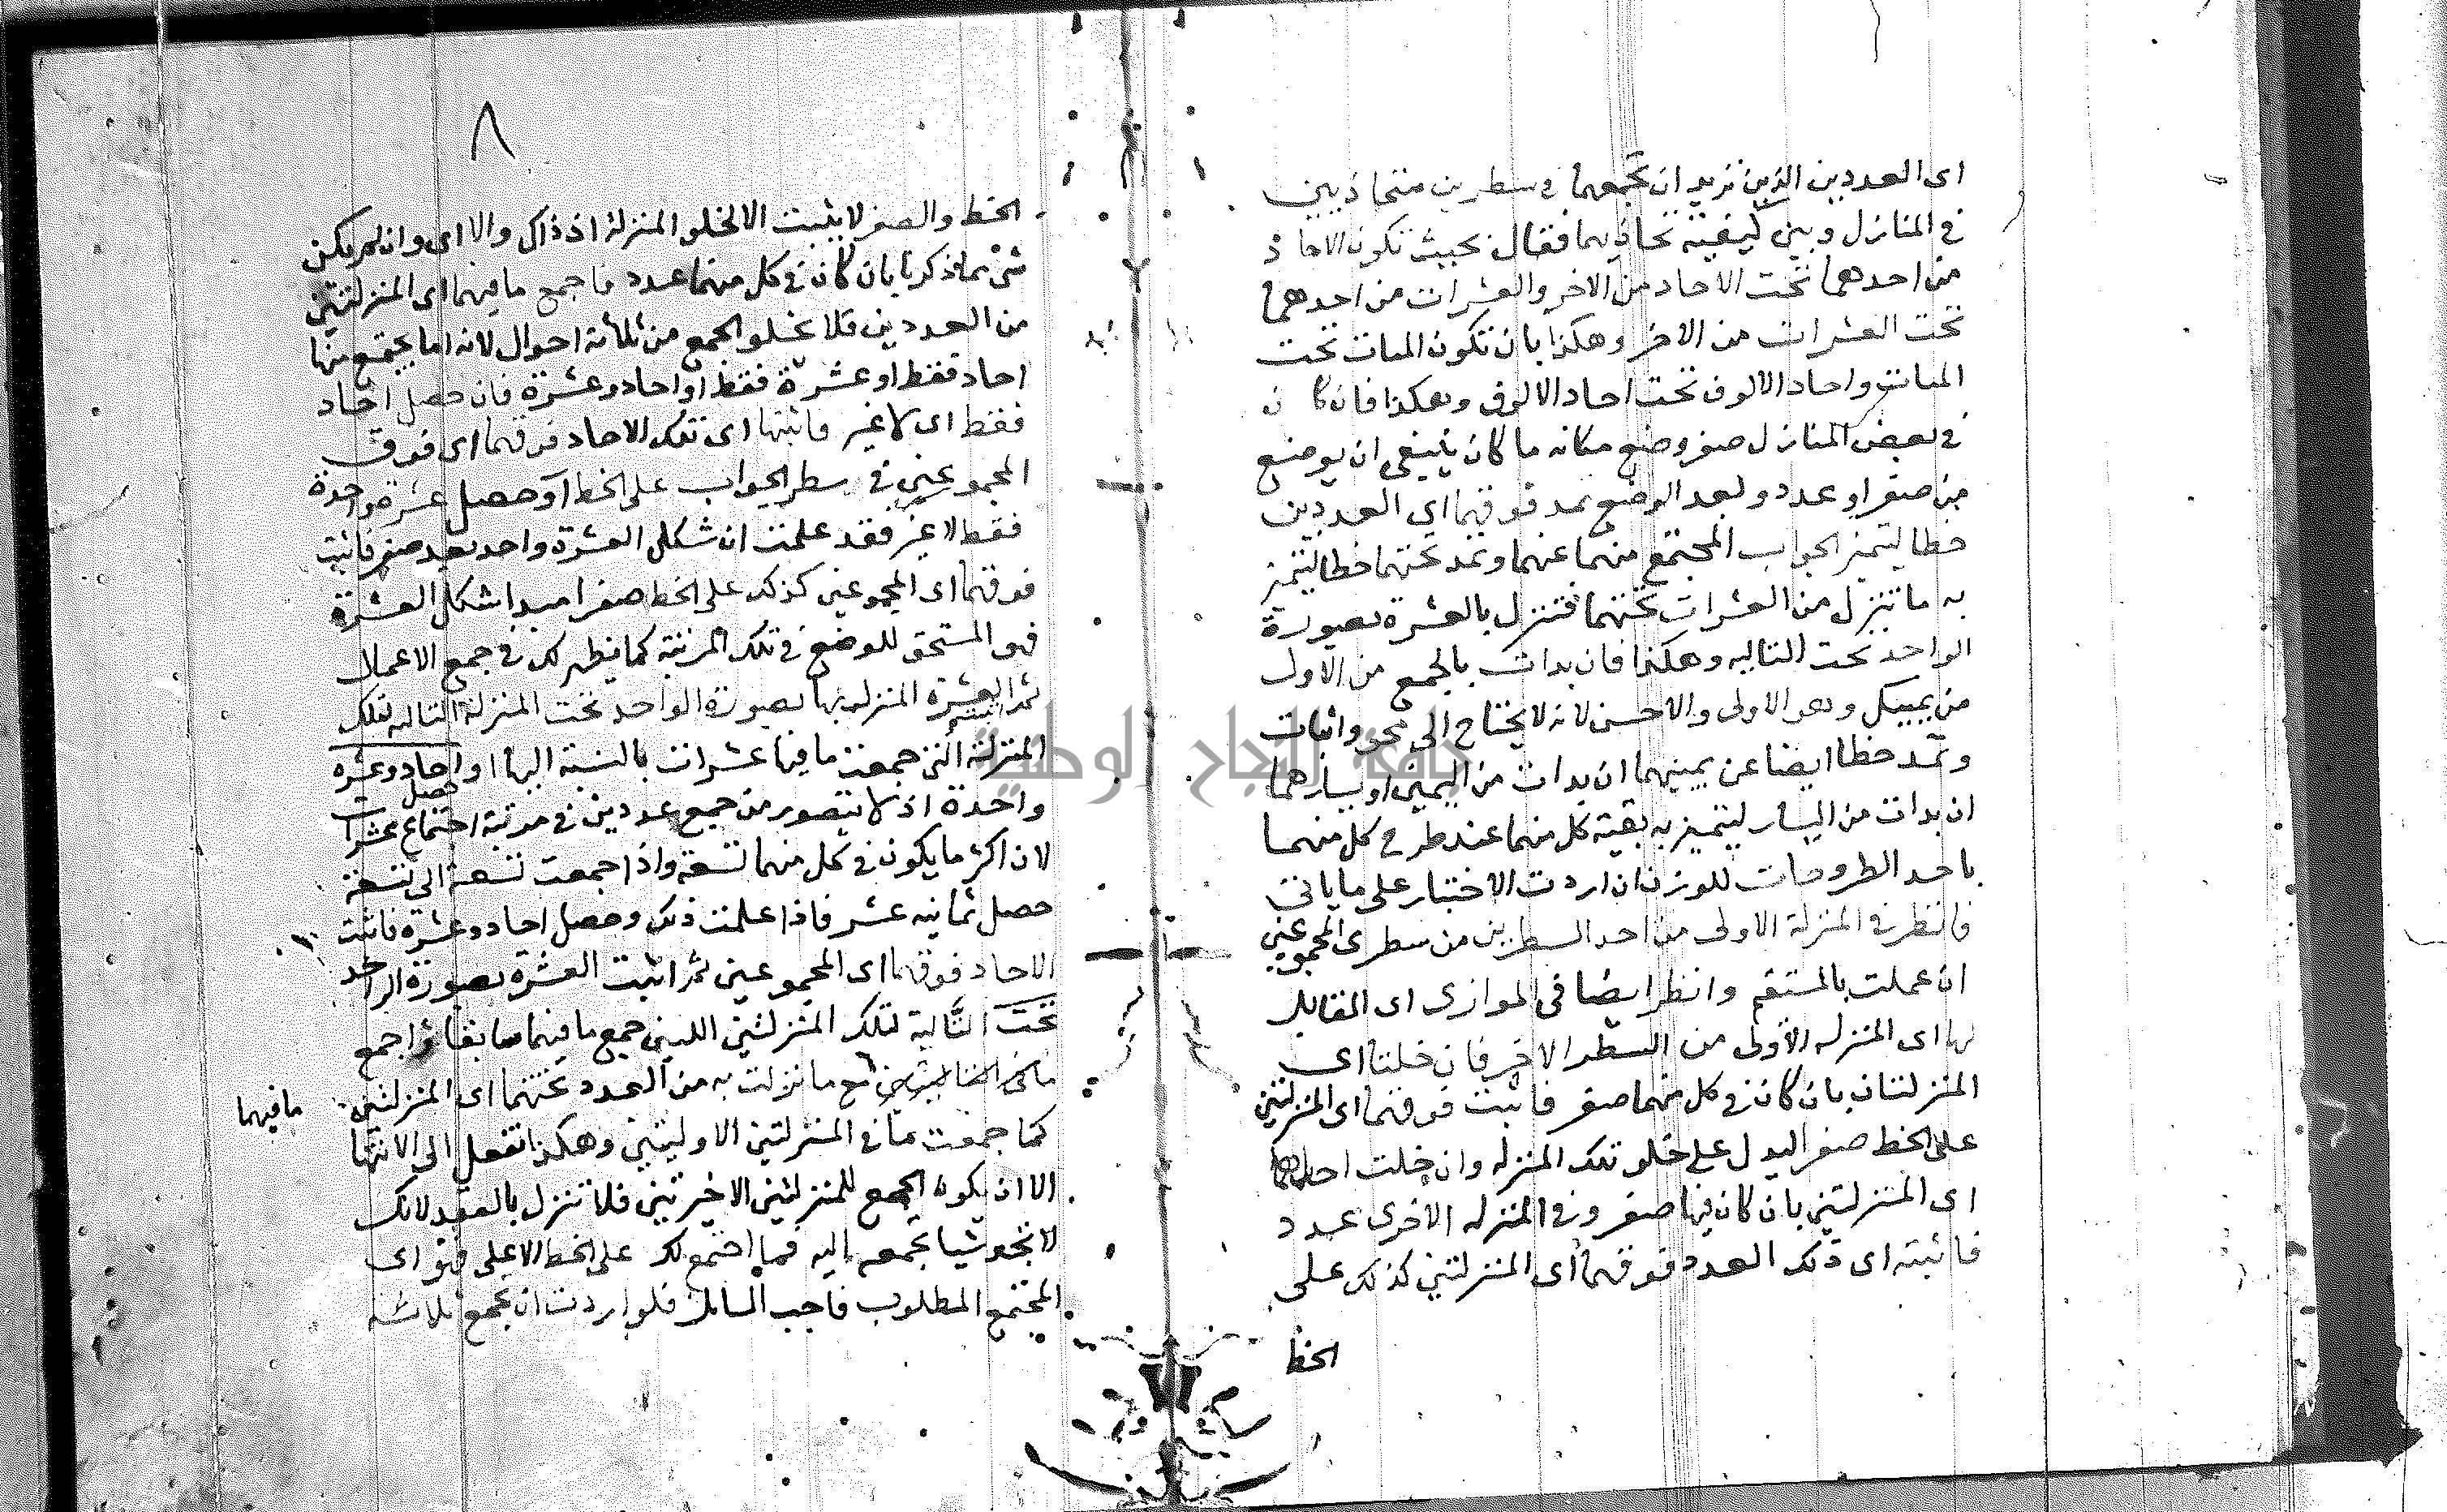 اى العددين الذين تريد ان تجمعهما فى سطرين متحاذيين
فى المنازل وبين كيفية تحاذيهما فقال بحيث تكون الاحاد
من احدهما تحت الاحاد من الاخر والعشرات من احدهما
تحت العشرات من الاخر وهكذا بان تكون المات تحت
المات واحاد الالوف تحت احاد الالوف وهكذا فان كان
فى بعض المنازل صفر وضع مكانه ما كان ينبغى ان يوضع
من صفر او عدد وبعد الوضع تمد فوقهما اى العددين
خطا ليتميز الجواب المجتمع منهما عنهما وتمد تحتهما خطا ليتميز
به ما تنزل من العشرات تحتهما فتنزل بالعشرة بصورة
الواحد تحت التاليه وهكذا فان بدات بالجمع من الاول
من يمينك وهو الاولى والاحسن لانه لا يحتاج الى محو واثبات
وتمد خطا ايضا عن يمينهما ان بدات من اليمين او يسارهما
ان بدات من اليسار ليتميز به بقية كل منهما عند طرح كل منهما
باحد الطروحات للوزن ان اردت الاختبار على ما ياتى
فانظر فى المنزلة الاولى من احد السطرين من سطرى المجموعين
ان عملت بالمستقم وانظر ايضا فى الموازى اى المقابل
لها اى المنزله الاولى من السطر الاخر فان خلتا اى
المنزلتان بان كان فى كل منهما صفر فاثبت فوقهما اى المنزلتين
على الخط صفر اليدل على خلو تلك المنزله وان خلت احداهما
اى المنزلتين بان كان فيها صفر وفى المنزله الاخرى عدد
فاثبته اى ذلك العدد فوقهما اى المنزلتين كذلك على
الخط
٨
الخط والصفر لا يثبت الا لخلو المنزلة اذ ذاك والا اى وان لم يكن
شئ مما ذكرنا بان كان فى كل منهما عدد فاجمع ما فيهما اى المنزلتين
من العددين فلا يخلو الجمع من ثلاثة احوال لانه اما يجتمع منها
احاد فقط او عشرة فقط او احاد وعشرة فان حصل احاد
فقط اى لا غير فاثبتها اى تلك الاحاد فوقهما اى فوق
المجموعين فى سطر الجواب على الخط او حصل عشرة واحدة
فقط لا غير فقد علمت ان شكل العشرة واحد بعد صفر فاثبت
فوقهما اى المجموعين كذلك على الخط صفرا مبدا شكل العشرة
فهو المستحق للوضع فى تلك المرتبة كما يظهر لك فى جمع الاعمال
ثم العشرة المنزله بها بصورة الواحد تحت المنزلة التاليه لتلك
المنزلة التى جمعت ما فيها عشرات بالنسبة اليها او حصل احاد وعشره
واحدة اذ لا يتصور من جمع عددين فى مرتبة اجتماع عشرات
لان اكثر ما يكون فى كل منهما تسعة واذا جمعت تسعة الى تسعة
حصل ثمانيه عشر فاذا علمت ذلك وحصل احاد وعشرة فاثبت
الاحاد فوقهما اى المجموعين ثم اثبت العشرة بصورة الواحد
تحت التالية لتلك المنزلتين اللتين جمع ما فيهما سابقا ثم اجمع
مع ما نزلت به من العدد تحتهما اى المنزلتين
ما فيهما
كما جمعت ما فى المنزلتين الاوليتين وهكذا تفعل الى الانتها
الا ان يكون الجمع للمنزلتين الاخيرتين فلا تنزل بالعقد لانك
لا تجد شيا تجمعه اليه فما اجتمع لك على الخط الاعلى فهو اى
المجتمع المطلوب فاجب السائل فلو اردت ان تجمع ثلاثة
جامعة النجاح الوطنية